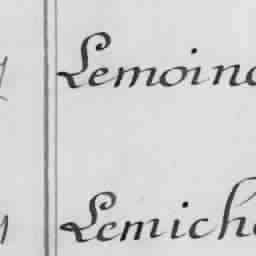 Lemoin
Lemich